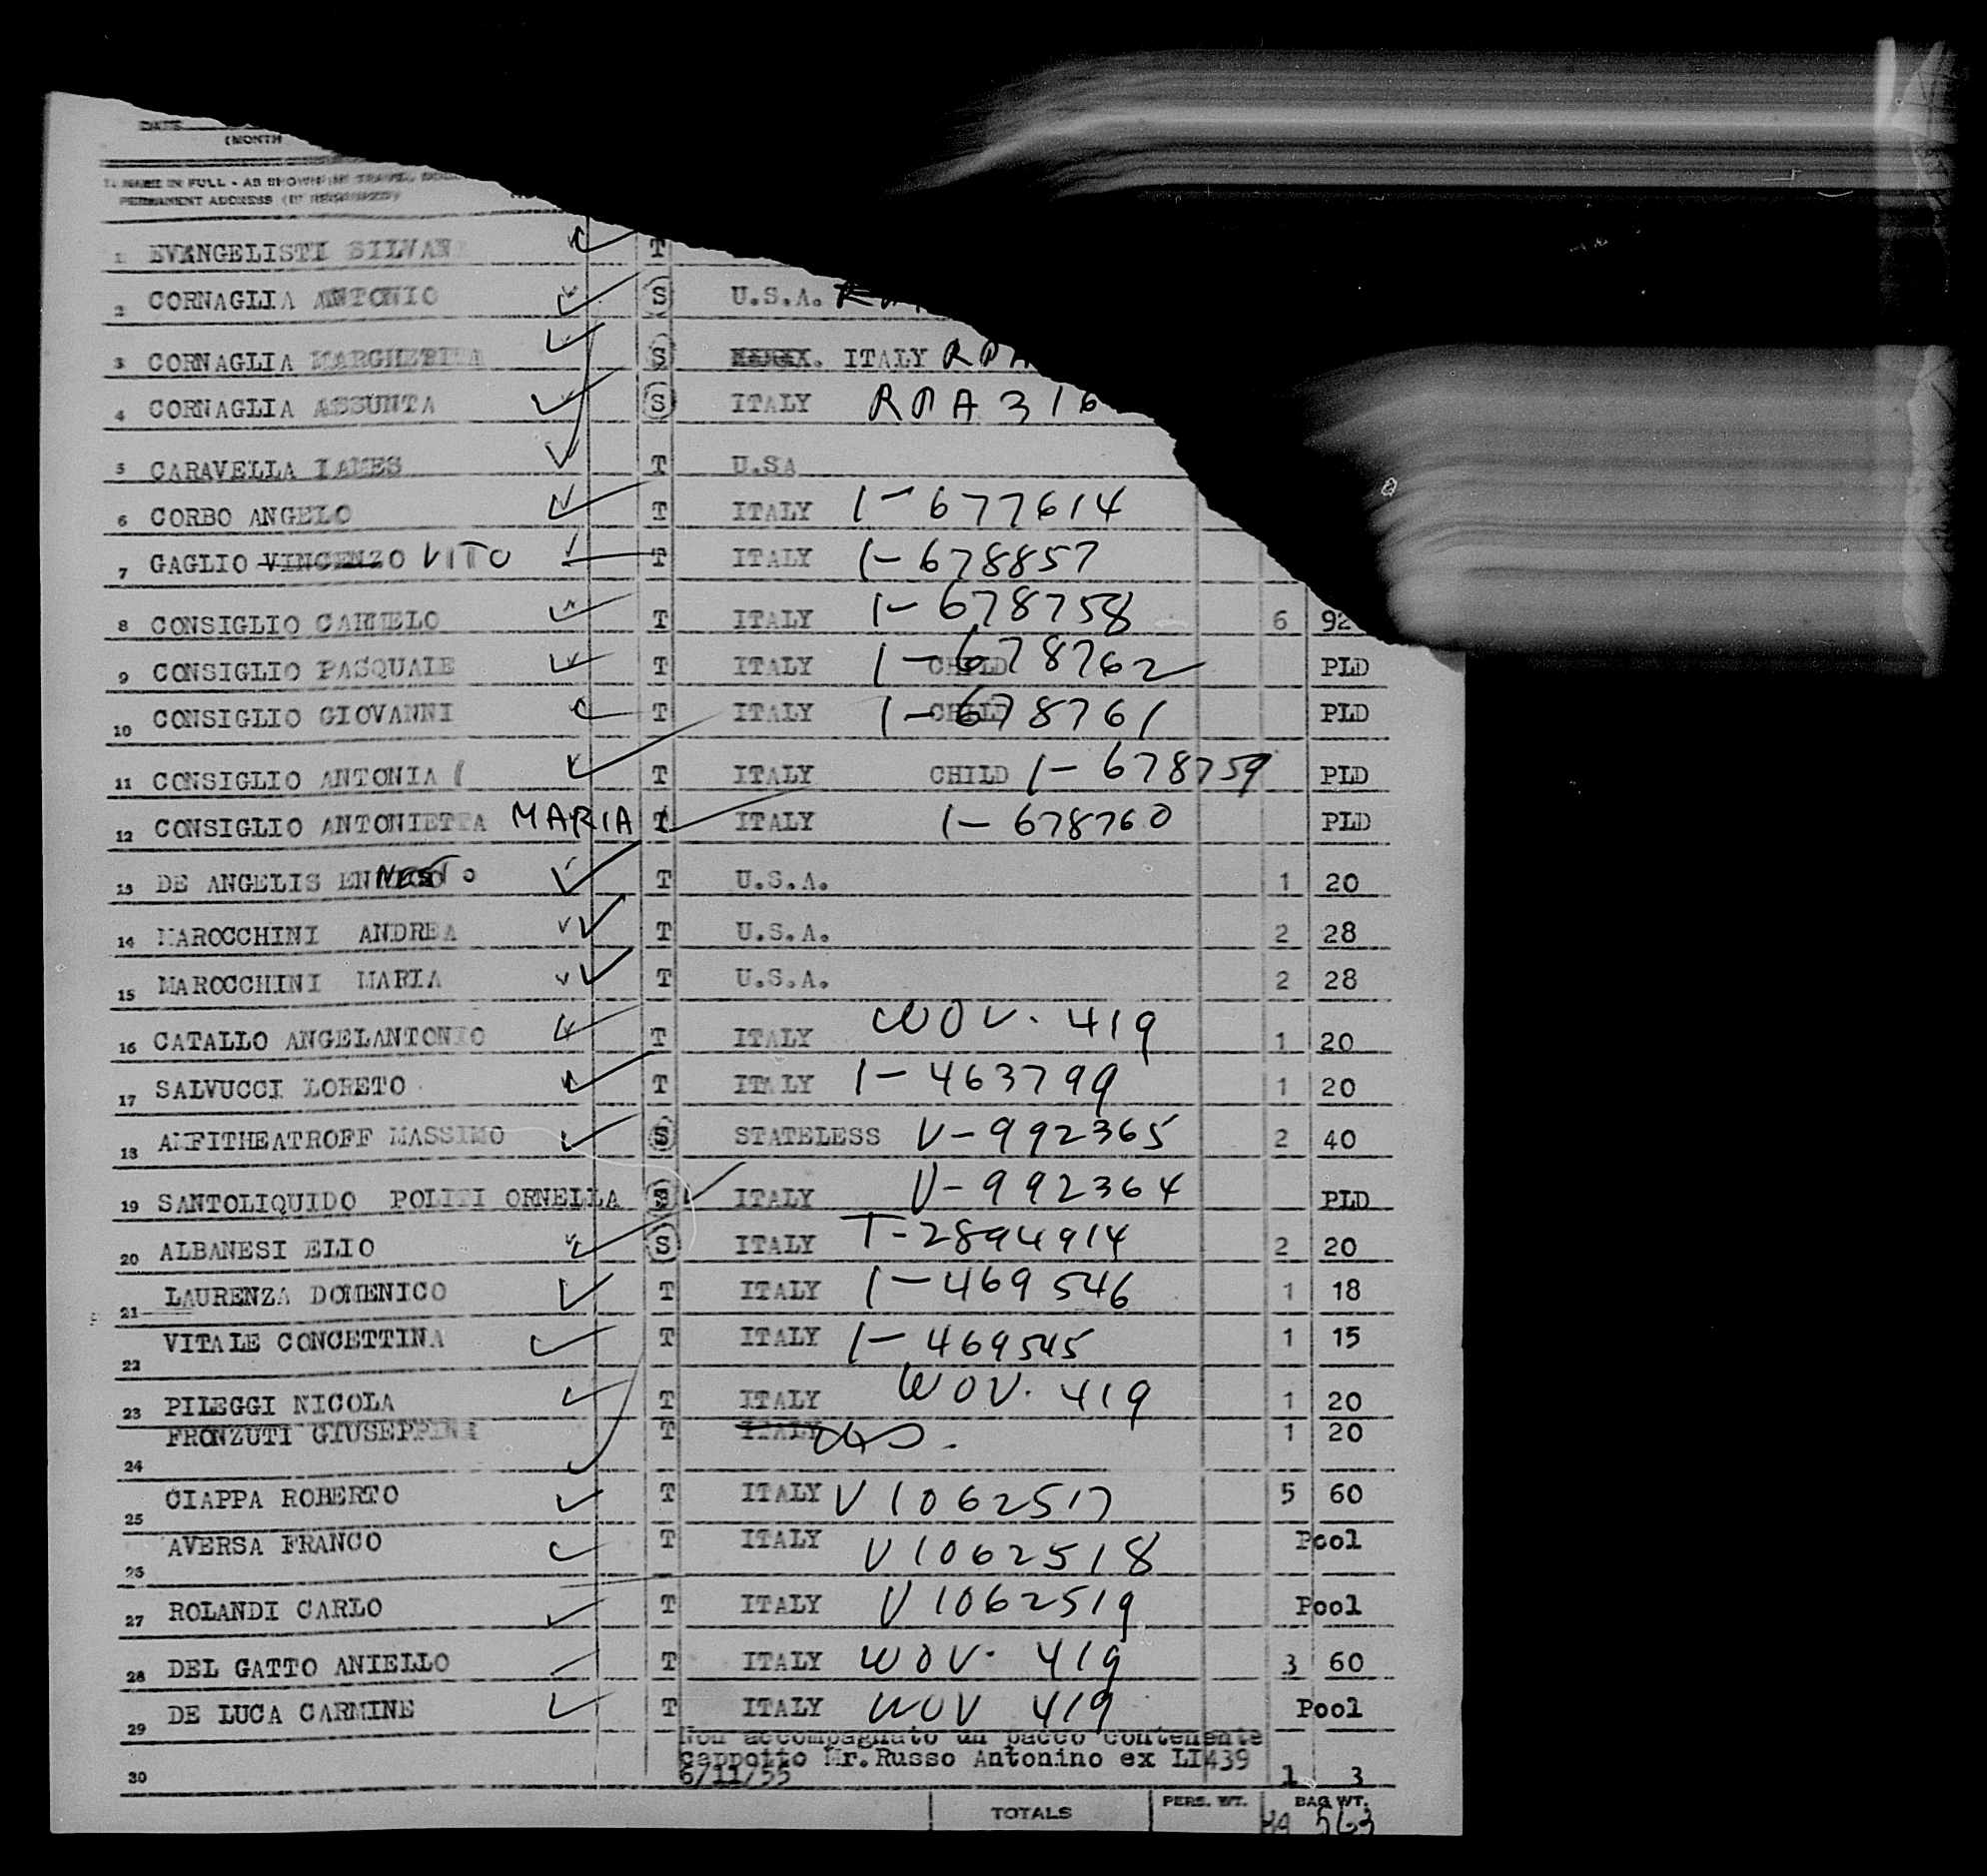 DATE
(MONTH
NAME IN FULL - AS SHOWN IN TRAVEL
PERMANENT ADDRESS (IF REQUIRED)
1 EVANGELISTI SILVAN T
2 CORNAGLIA ANTONIO S U.S.A.
3 CORNAGLIA MARGHERITA S ITALY
4 CORNAGLIA ASSUNTA S ITALY 316
5 CARAVELLA IAMES T U.SA
6 CORBO ANGELO T ITALY 1-677614
7 GAGLIO VINCENZO VITO T ITALY 1-678857
8 CONSIGLIO CARMELO T ITALY 1-678758 6 92
9 CONSIGLIO PASQUALE T ITALY CHILD 1-678762 PLD
10 CONSIGLIO GIOVANNI T ITALY CHILD 1-678761 PLD
11 CONSIGLIO ANTONIA T ITALY CHILD 1-678759 PLD
12 CONSIGLIO ANTONIETTA MARIA T ITALY 1-678760 PLD
13 DE ANGELIS T U.S.A. 1 20
14 MAROCCHINI ANDREA T U.S.A. 2 28
15 MAROCCHINI MARIA T U.S.A. 2 28
16 CATALLO ANGELANTONIO T ITALY WOV. 419 1 20
17 SALVUCCI LORETO T ITALY 1-463799 1 20
18 AMFITHEATROFF MASSIMO S STATELESS V-992365 2 40
19 SANTOLIQUIDO POLITI ORNELLA S ITALY V-992364 PLD
20 ALBANESI ELIO S ITALY T-2894914 2 20
21 LAURENZA DOMENICO T ITALY 1-469546 1 18
22 VITALE CONCETTINA T ITALY 1-469545 1 15
23 PILEGGI NICOLA T ITALY WOV. 419 1 20
24 FRONZUTI GIUSEPPINA T ITALY 1 20
25 CIAPPA ROBERTO T ITALY V1062517 5 60
26 AVERSA FRANCO T ITALY V1062518 Pool
27 ROLANDI CARLO T ITALY V1062519 Pool
28 DEL GATTO ANIELLO T ITALY WOV. 419 3 60
29 DE LUCA CARMINE T ITALY WOV 419 Pool
Non accompagnato un pacco contenente
cappotto Mr.Russo Antonino ex LI439
30 6/11/55 1 3
TOTALS PERS. WT. BAG WT.
563